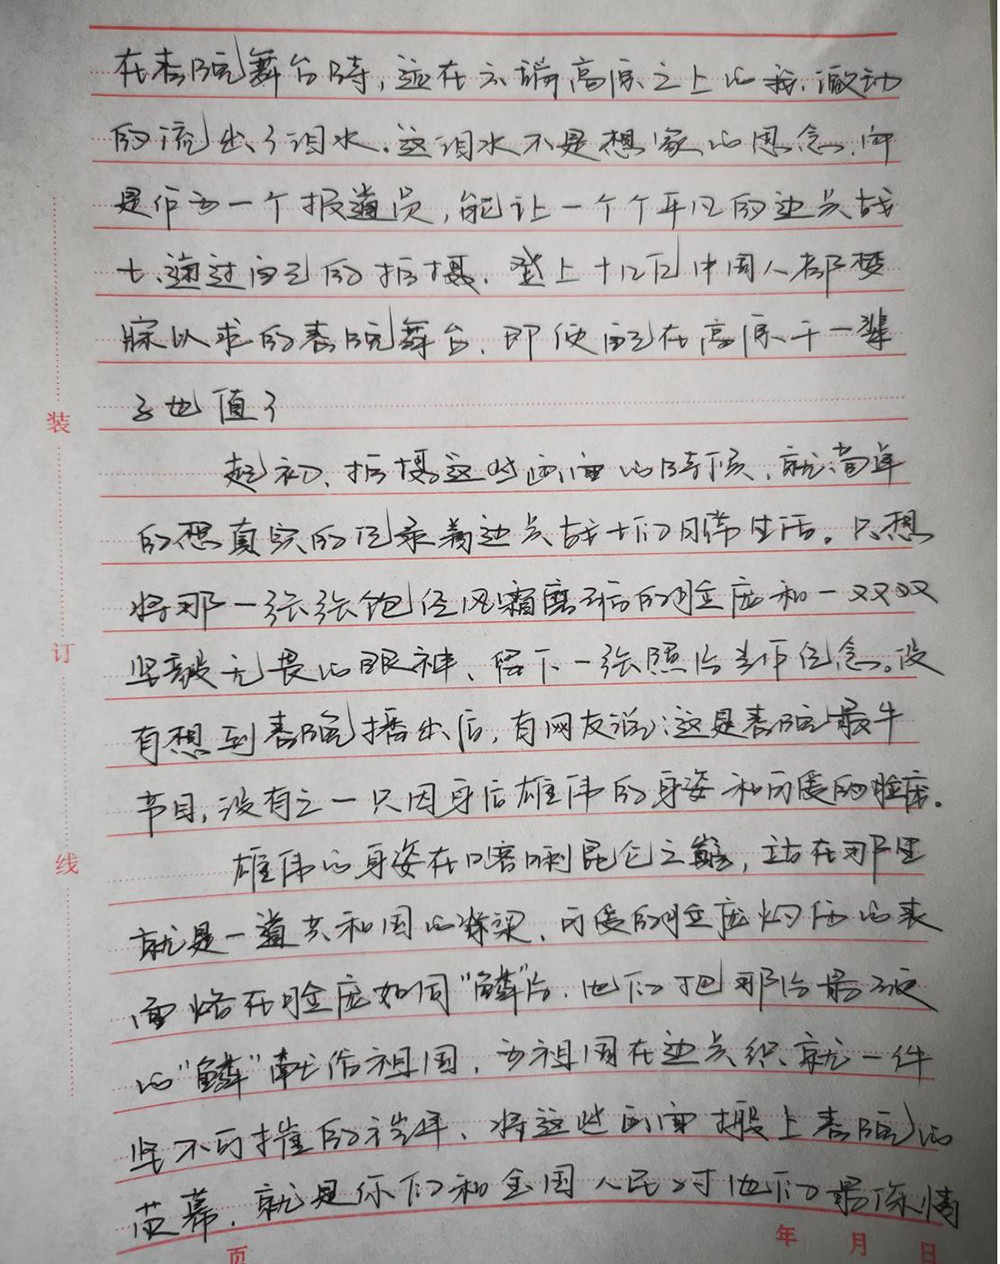 在春晚舞台时，远在云端高原之上的我，激动
的流出了泪水。这泪水不是想家的思念，而
是作为一个报道员，能让一个个平凡的边关战
士，通过自己的拍摄，登上十几亿中国人都梦
寐以求的春晚舞台，即便自己在高原干一辈
子也值了
起初，拍摄这些画面的时候，就简单
的想真实的记录着边关战士们日常生活。只想
将那一张张饱经风霜磨砺后的脸庞和一双双
坚毅无畏的眼神，留下一张照片当作纪念。没
有想到春晚播出后，有网友说：这是春晚最牛
节目，没有之一只因身后雄伟的身姿和可爱的脸庞。
雄伟的身姿在喀喇昆仑之巅，站在那里
就是一道共和国的脊梁，可爱的脸庞灼伤的表
面烙在脸庞如同“鳞”片，他们把那片最硬
的“鳞”献给祖国，为祖国在边关织就一件
坚不可摧的铠甲，将这些画面搬上春晚的
荧幕，就是你们和全国人民对他们最深情
装
订
线
页
年 月 日